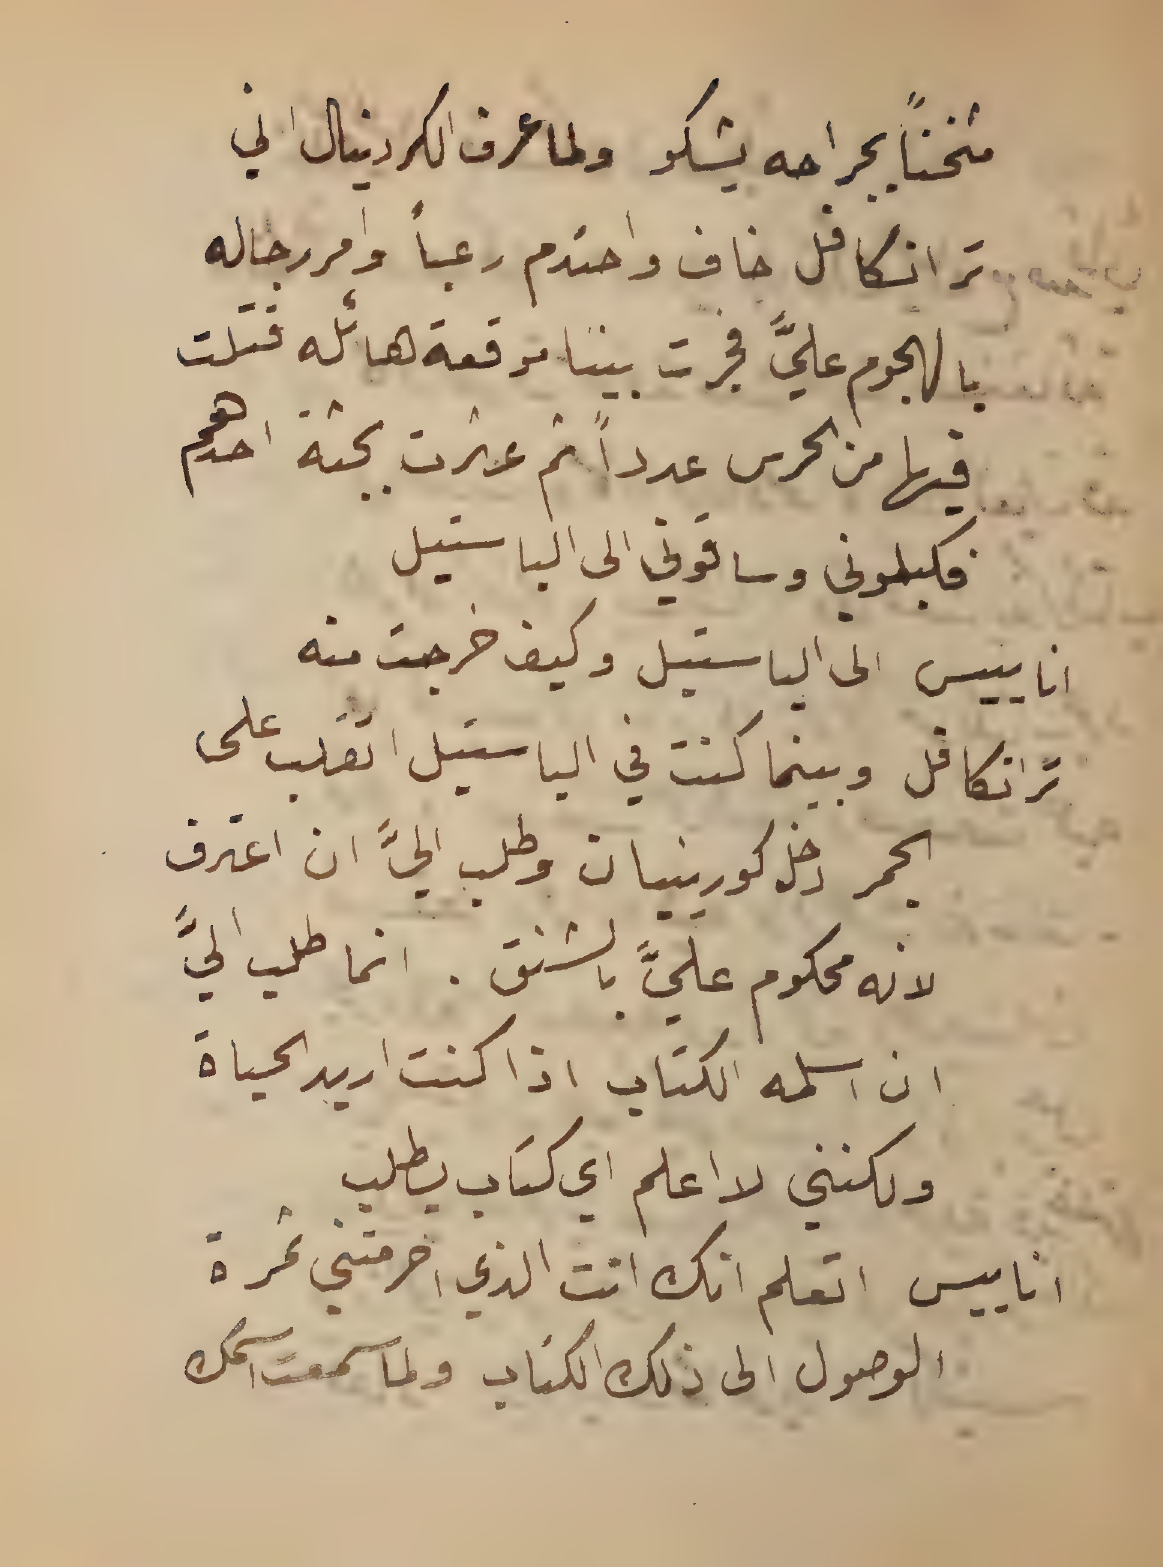 مثخناً بجراحه يشكو ولما عرف الكردينال اني
ترانكافل خاف واحتدم رعباً وامر رجاله
بالهجوم عليَّ فجرت بيننا موقعة هائله قتلت
فيها من الحرس عدداً ثم عثرت بجثة احدهم
فكبلوني وساقوني الى الباستيل
اناييس الى الباستيل وكيف خرجت منه
ترانكافل وبينما كنت في الباستيل اتقلب على
الجمر دخل كورينيان وطلب اليَّ ان اعترف
لانه محكوم عليَّ بالشنق . انما طلب اليَّ
ان اسلمه الكتاب اذا كنت اريد الحياة
ولكنني لا اعلم اي كتاب يطلب
اناييس اتعلم انك انت الذي احرمتني ثمرة
الوصول الى ذلك الكتاب ولما سمعت اسمك